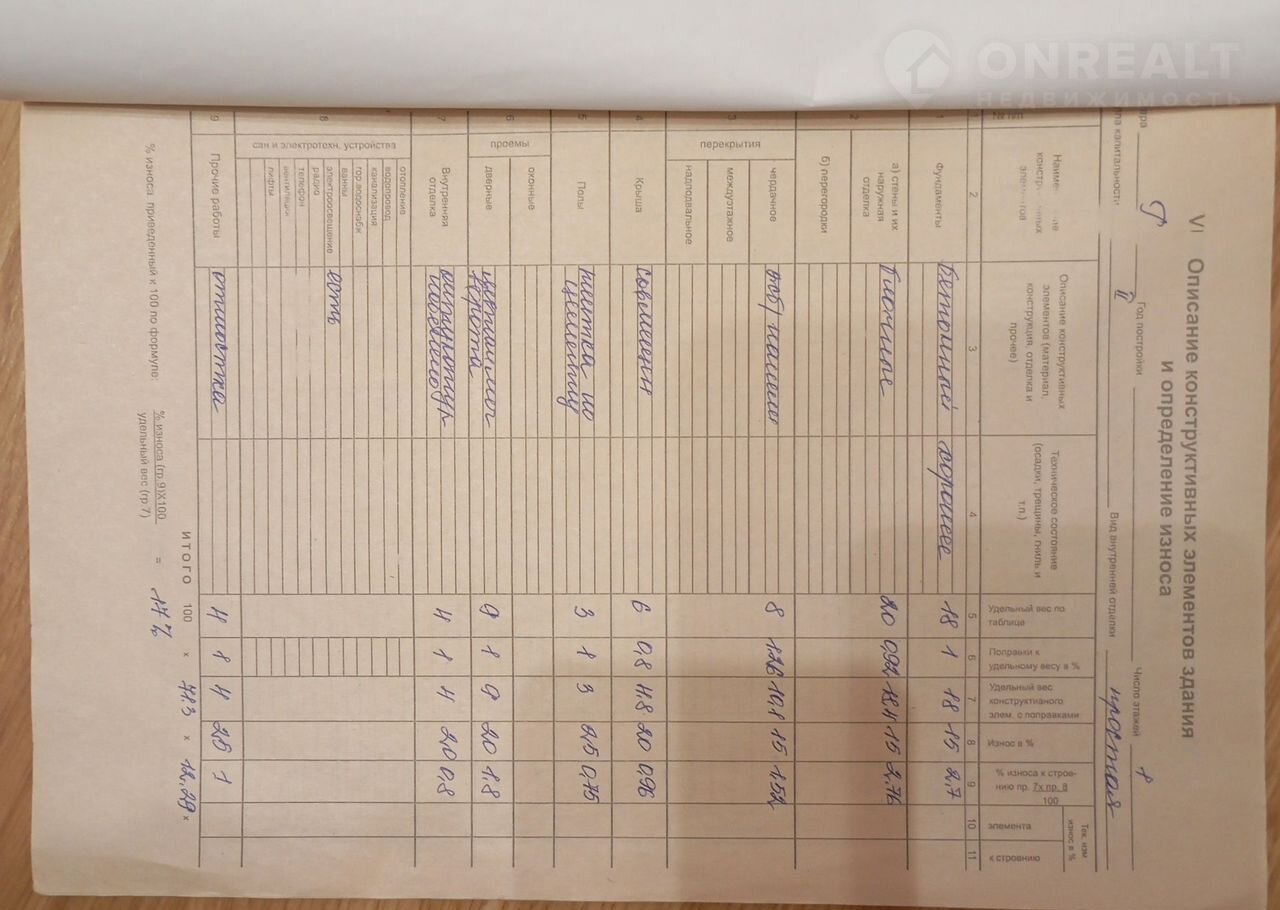 ONREALT
НЕДВИЖИМОСТЬ
VI Описание конструктивных элементов здания
и определение износа
Год постройки
Число этажей 1
па капитальности II
Вид внутренней отделки простая
№ пп
конструктивных элементов
Описание конструктивных элементов (материал, конструкция, отделка и прочее)
Техническое состояние (осадки, трещины, гниль и т.п.)
Удельный вес по таблице
Поправки к удельному весу в %
Удельный вес конструктивного элем. с поправками
Износ в %
% износа к строению пр. 7х пр. 8 100
Тек. изм износ в %
элемента
к строению
1 2 3 4 5 6 7 8 9 10 11
1 Фундаменты Бетонный хорошее 18 1 18 15 2,7
2 а) стены и их наружная отделка 20 0,92 18,4 15 2.76
б) перегородки
3 перекрытия
чердачное 8 15
междуэтажное
надподвальное
4 Крыша 6 0,8 4,8 20 0,96
5 Полы плитка по цементу 3 1 3 25 0,75
6 проемы
оконные
дверные 9 1 9 20 1.8
7 Внутренняя отделка 4 1 4 20 0.8
8 сан и электротехн. устройства
отопление
водопровод
канализация
гор.водоснабж
ванны
электроосвещение есть
радио
телефон
вентиляция
лифты
9 Прочие работы отмостка 4 1 4 25 1
ИТОГО 100 x x x
% износа приведенный к 100 по формуле: % износа (гр.9)Х100 = 17%
удельный вес (гр.7)